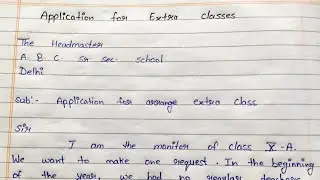 Application for Extra classes
The Headmaster
A. B. C. sr sec. school
Delhi
Sub:- Application for arrange extra Class
Sir
I am the monitor of class X-A.
We want to make one request. In the beginning
of the year, we had no regular teachers